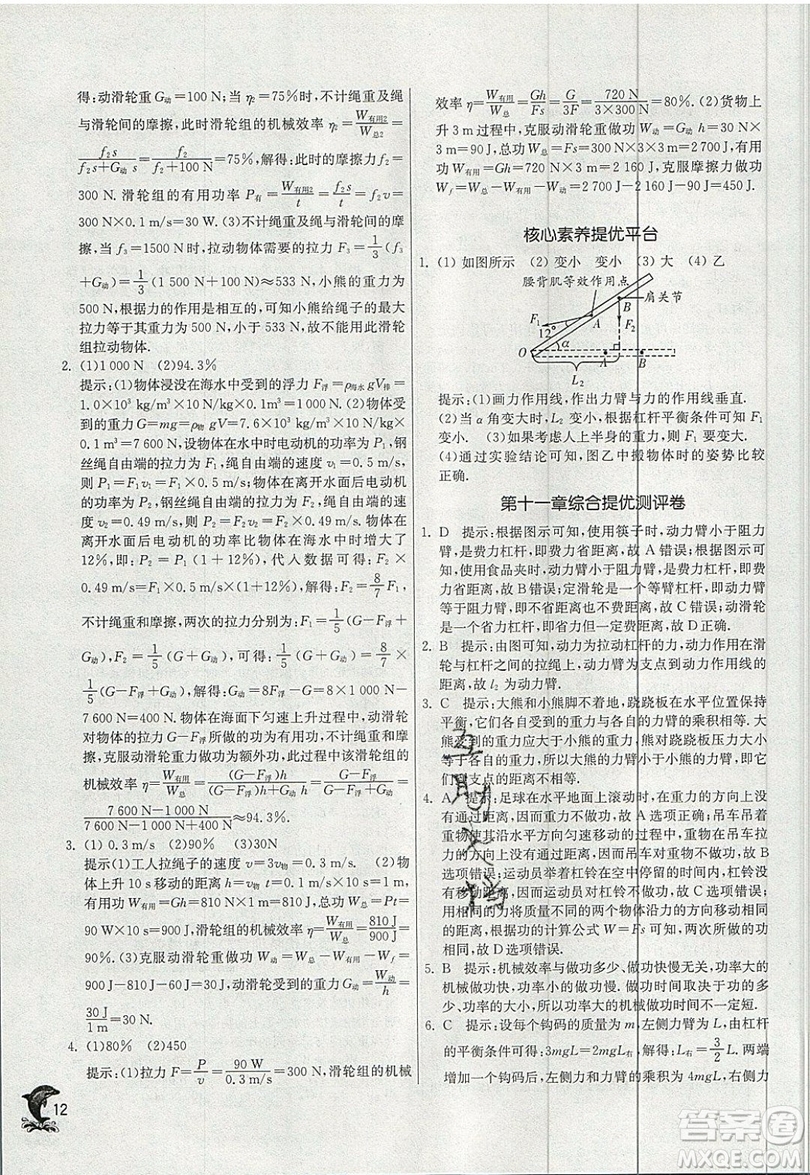 得:动滑轮重G动=100 N;当 η2=75%时,不计绳重及绳
与滑轮间的摩擦,此时滑轮组的机械效率 η2=W有用2/W总2=
f2s/(f2s+G动 s)=f2/(f2+100 N)=75%,解得:此时的摩擦力 f2=
300 N. 滑轮组的有用功率 P有=W有用2/t=f2s/t=f2v=
300 N×0.1 m/s=30 W. (3)不计绳重及滑轮间的摩
擦,当 f3=1 500 N时,拉动物体需要的拉力 F3=1/3(f3
+G动)=1/3(1 500 N+100 N)≈533 N,小熊的重力为
500 N,根据力的作用是相互的,可知小熊给绳子的最大
拉力等于其重力为 500 N,小于 533 N,故不能用此滑轮
组拉动物体.
2. (1)1 000 N (2)94.3%
提示:(1)物体浸没在海水中受到的浮力 F浮=ρ海水 gV排=
1.0×10³ kg/m³×10 N/kg×0.1 m³=1 000 N. (2)物体受
到的重力 G=mg=ρ物 gV=7.6×10³ kg/m³×10 N/kg
×0.1 m³=7 600 N,设物体在水中时电动机的功率为 P1,钢
丝绳自由端的拉力为 F1,绳自由端的速度 v1=0.49 m/s,
则 P1=F1v1=F1×0.49 m/s. 物体在离开水面后电动机
的功率为 P2,钢丝绳自由端的拉力为 F2,绳自由端的速度
v2=0.49 m/s,则 P2=F2v2=F2×0.49 m/s. 因为物体在
离开水面后电动机的功率比物体在海水中时增大了
12%,即:P2=P1×(1+12%),代入数据可得:F2×
0.49 m/s=F1×0.49 m/s×(1+12%),即:F2=8/7 F1,
不计绳重和摩擦,两次的拉力分别为:F1=1/5(G-F浮
+G动),F2=1/5(G+G动),可得:1/5(G+G动)=8/7×
1/5(G-F浮+G动),解得:G动=8F浮-G=8×1 000 N-
7 600 N=400 N. 物体在海面下匀速上升过程中,滑轮对
物体的拉力 G-F浮所做的功为有用功,不计绳重和摩
擦,克服动滑轮重力做功为额外功,此过程中该滑轮组的
机械效率 η=W有用/W总=(G-F浮)h/(G-F浮+G动)h=(G-F浮)/(G-F浮+G动)=
(7 600 N-1 000 N)/(7 600 N-1 000 N+400 N)≈94.3%.
3. (1) 0.3 m/s (2)90% (3)30N
提示(1)工人拉绳子的速度 v=3v物=0.3 m/s. (2)物
体上升 10 s移动的距离 h=v物 t=0.1 m/s×10 s=1 m,
有用功 W有用=Gh=810N×1 m=810 J,总功 W总=Pt=
90 W×10 s=900 J. 滑轮组的机械效率 η=W有用/W总=810 J/900 J=
90%. (3)克服动滑轮重力做功 W动=W总-W有用-W摩=
900 J-810 J-60 J=30 J,动滑轮受到的重力 G动=W动/h=
30 J/1 m=30 N.
4. (1)80% (2)450
提示:(1)拉力 F=P/v=90 W/0.3 m/s=300 N,滑轮组的机械
12
效率 η=W有用/W总=Gh/Fs=G/3F=720 N/(3×300 N)=80%. (2)货物上
升 3 m过程中,克服动滑轮重做功 W动=G动h=30 N×
3 m=90 J,总功 W总=Fs=300 N×3×3 m=2 700 J,有
用功 W有用=Gh=720 N×3 m=2 160 J,克服摩擦力做功
Wf=W总-W有用-W动=2 700 J-2 160 J-90 J=450 J.
核心素养提优平台
1. (1) 如图所示 (2) 变小 变小 (3) 大 (4) 乙
腰背肌等效作用点
肩关节
F1 12° A B F2
O α A B
L2
提示:(1)画力作用线,作出力臂与力的作用线垂直.
(2)当 α 角变大时,L2 变小,根据杠杆平衡条件可知 F1
变小. (3)如果考虑人上半身的重力,则 F1 要变大.
(4)通过实验结论可知,图乙中搬物体时的姿势比较
正确.
第十一章综合提优测评卷
1. D 提示:根据图示可知,使用筷子时,动力臂小于阻力
臂,是费力杠杆,即费力省距离,故 A 错误;根据图示可
知,使用食品夹时,动力臂小于阻力臂,是费力杠杆,即
费力省距离,故 B错误;定滑轮是一个等臂杠杆,既不省
力也不费力,既不省距离也不费距离,故 C 错误;动滑轮
是一个省力杠杆,省力但一定费距离,故 D 正确.
2. B 提示:由图可知动力为拉动杠杆的力,动力作用在滑
轮与杠杆之间的拉绳上,动力臂为支点到动力作用线的
距离,故 l2 为动力臂.
3. C 提示:大熊和小熊脚不着地,跷跷板在水平位置保持
平衡,它们各自受到的重力与各自的力臂的乘积相等. 大
熊受到的重力大于小熊的重力,熊对跷跷板压力大小
等于各自受到的重力,所以大熊的力臂小于小熊的力臂,
它们与支点的距离不相等.
4. A 提示:足球在水平地面上滚动时,在重力的方向上没
有通过距离,所以重力没有做功,故 A选项正确;吊车吊着
重物使其沿水平方向匀速移动的过程中,在吊车吊绳拉力
方向上没有通过距离,所以吊车对重物的拉力没有做功,故
B选项错误;运动员举着杠铃在空中停留的时间内,杠铃没
有移动距离,所以运动员对杠铃没有做功,故 C选项错误;
用相同的力将质量不同的两个物体沿力的方向移动相同
的距离,功的计算公式 W=Fs 可知,两次所做的功相
同,故 D选项错误.
5. B 提示:机械效率与做功多少、做功快慢无关,功率大的
机械做功快,但不一定做功多,做功多少还与时间有关,
功率大的做功快,所以功率大的机械做功时间不一定短.
6. C 提示:设每个钩码的质量为 m,左侧力臂为 L,由杠杆
的平衡条件知:3mgL=2mgL右,解得:L右=3/2 L. 两端
增加一个钩码后,左侧力和力臂的乘积为 4mgL,右侧力
答案圈
MXQE.COM